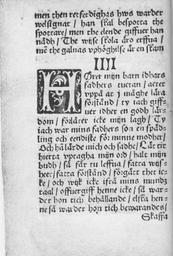 men then retferdighas hws warder
welsignat / han skal bespotta the
spottare / men the elende giffuer han
nådh / The wise skola äro erffua /
mē the galnas vphöghilse är en skam
IIII
Hörer mijn barn idhars
fadhers tuctan / acter
vppå at i måghe lära
förstånd / ty iach giffs
uer idher en godh lärs
dom / fölgater icke mijn lagh / Ty
iach war mins fadhers son en späds
ling och eendiste för minne modher /
Och hā lärde mich och sadhe / Lât tit
hierta vptagha mijn ord / halt mijn
budh / så får tu leffua / fatta wijss
het / fatta förstånd / förgäät
cke / och wijk icke ifrå mins mundz
taal / offuergiff henne icke / så wars
der hon tich behållande / elska hens
ne så warder hon tich bewarandes /
Skatta